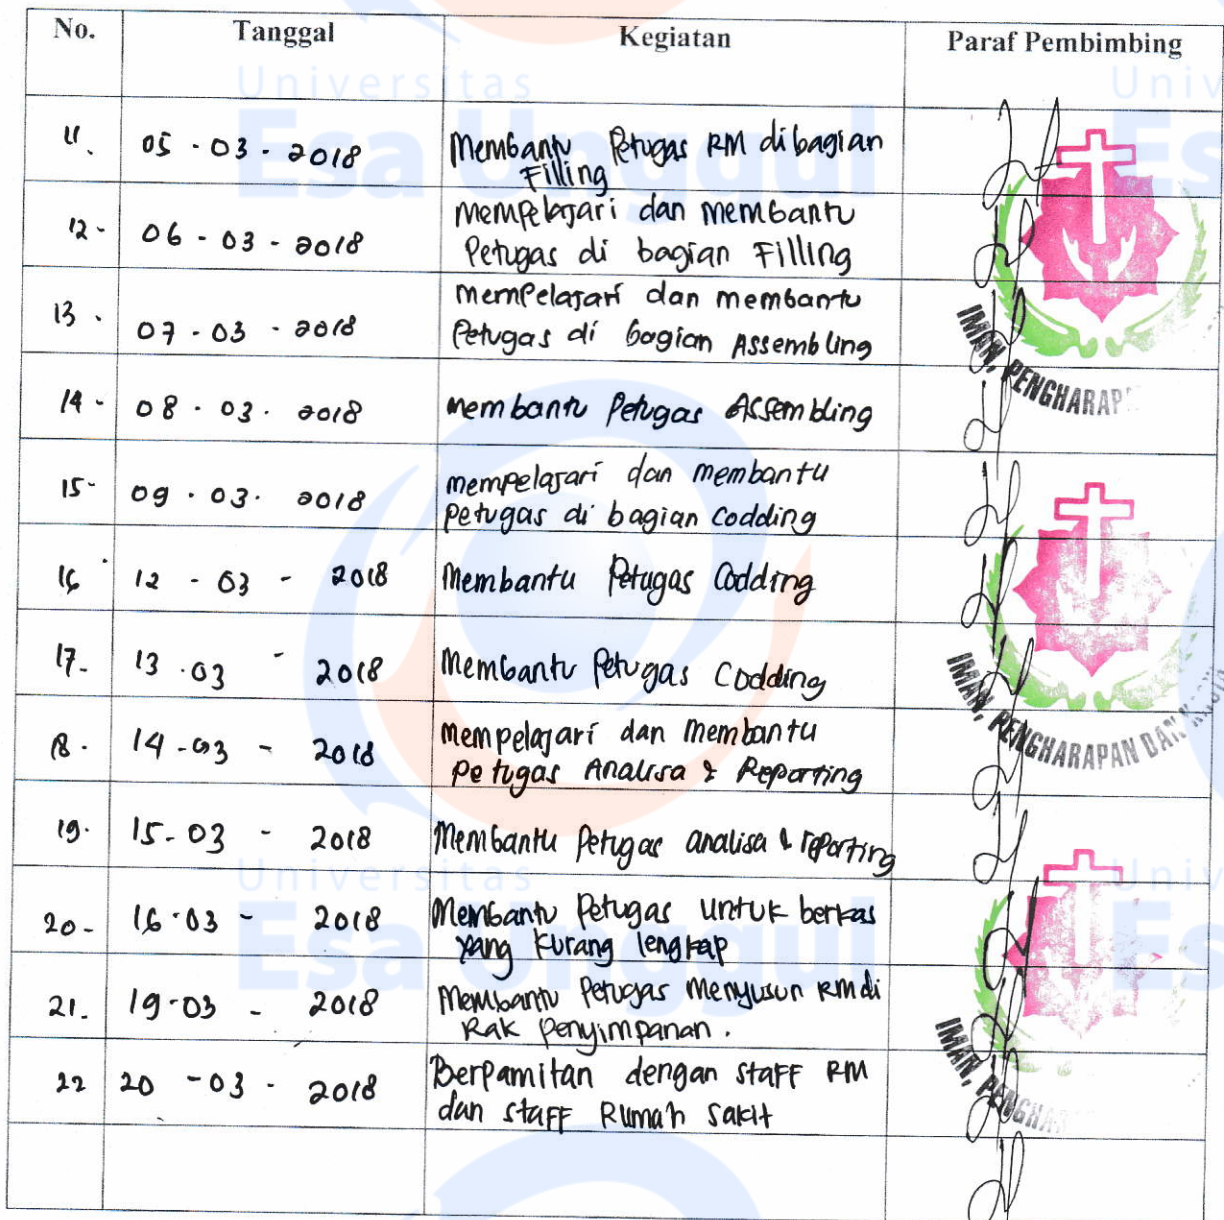 No. Tanggal Kegiatan Paraf Pembimbing
Universitas
Esa Unggul
11. 05 - 03 - 2018 Membantu Petugas RM di bagian
Filling
12 - 06 - 03 - 2018 Mempelajari dan Membantu
Petugas di bagian Filling
13. 07 - 03 - 2018 Mempelajari dan membantu
Petugas di bagian Assembling
14 - 08 - 03 - 2018 Membantu Petugas Assembling
15 - 09 - 03 - 2018 Mempelajari dan Membantu
Petugas di bagian Codding
16 12 - 03 - 2018 Membantu Petugas Codding
17. 13 - 03 - 2018 Membantu Petugas Codding
18. 14 - 03 - 2018 Mempelajari dan Membantu
Petugas Analisa & Reporting
19. 15 - 03 - 2018 Membantu Petugas analisa & reporting
20 - 16 - 03 - 2018 Membantu Petugas untuk berkas
yang kurang lengkap
21. 19 - 03 - 2018 Membantu Petugas Menyusun RM di
Rak Penyimpanan.
22 20 - 03 - 2018 Berpamitan dengan staff RM
dan staff Rumah Sakit
IMAN, PENGHARAP
IMAN, PENGHARAPAN DAN
IMAN, PENGHAR
Universitas
Esa Unggul